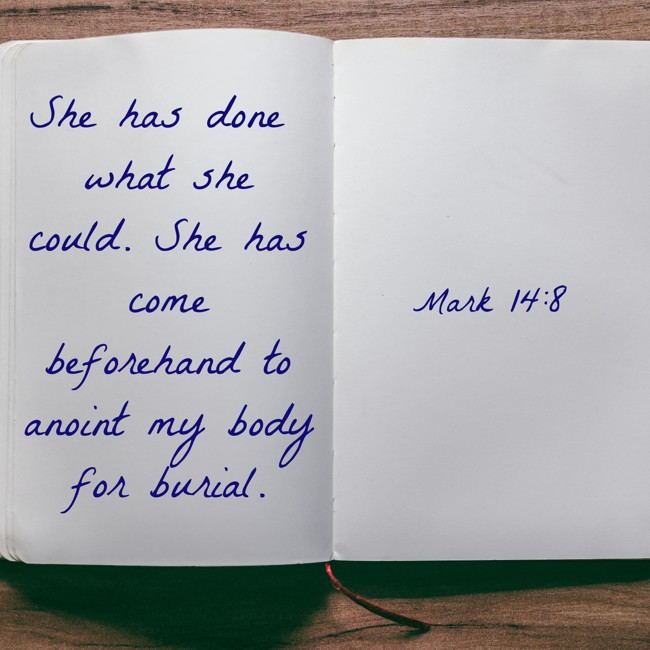 She has done
what she
could. She has
come
beforehand to
anoint my body
for burial.
Mark 14:8